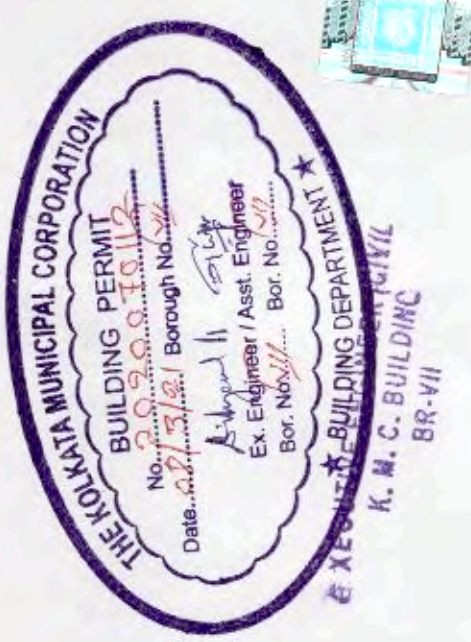 THE KOLKATA MUNICIPAL CORPORATION
BUILDING PERMIT
No. 2020070112
Date. 02/3/21 Borough No. VII
Ex. Engineer / Asst. Engineer
Bor. No. VII Bor. No. VII
★ BUILDING DEPARTMENT ★
EXECUTIVE ENGINEER (CIVIL
K. M. C. BUILDING
BR-VII